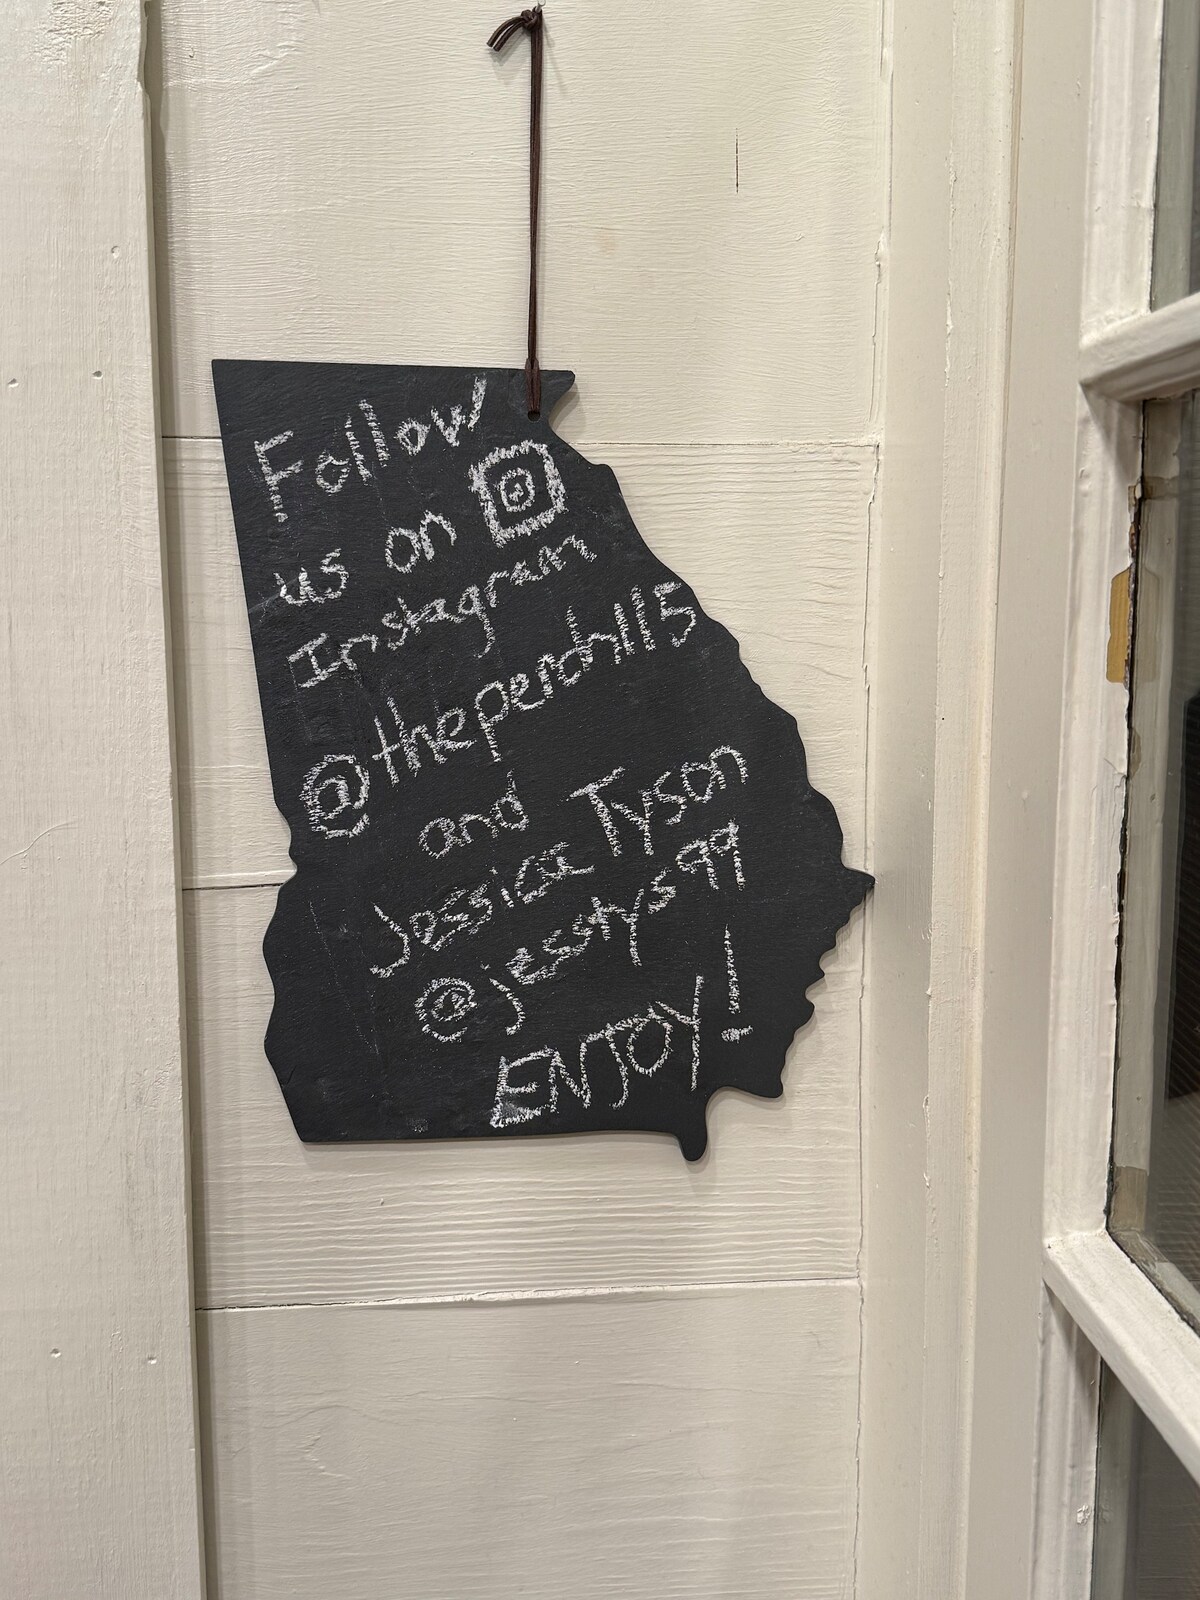 Follow
us on
Instagram
@theperch115
and
Jessica Tyson
@jesstys99
ENJOY!